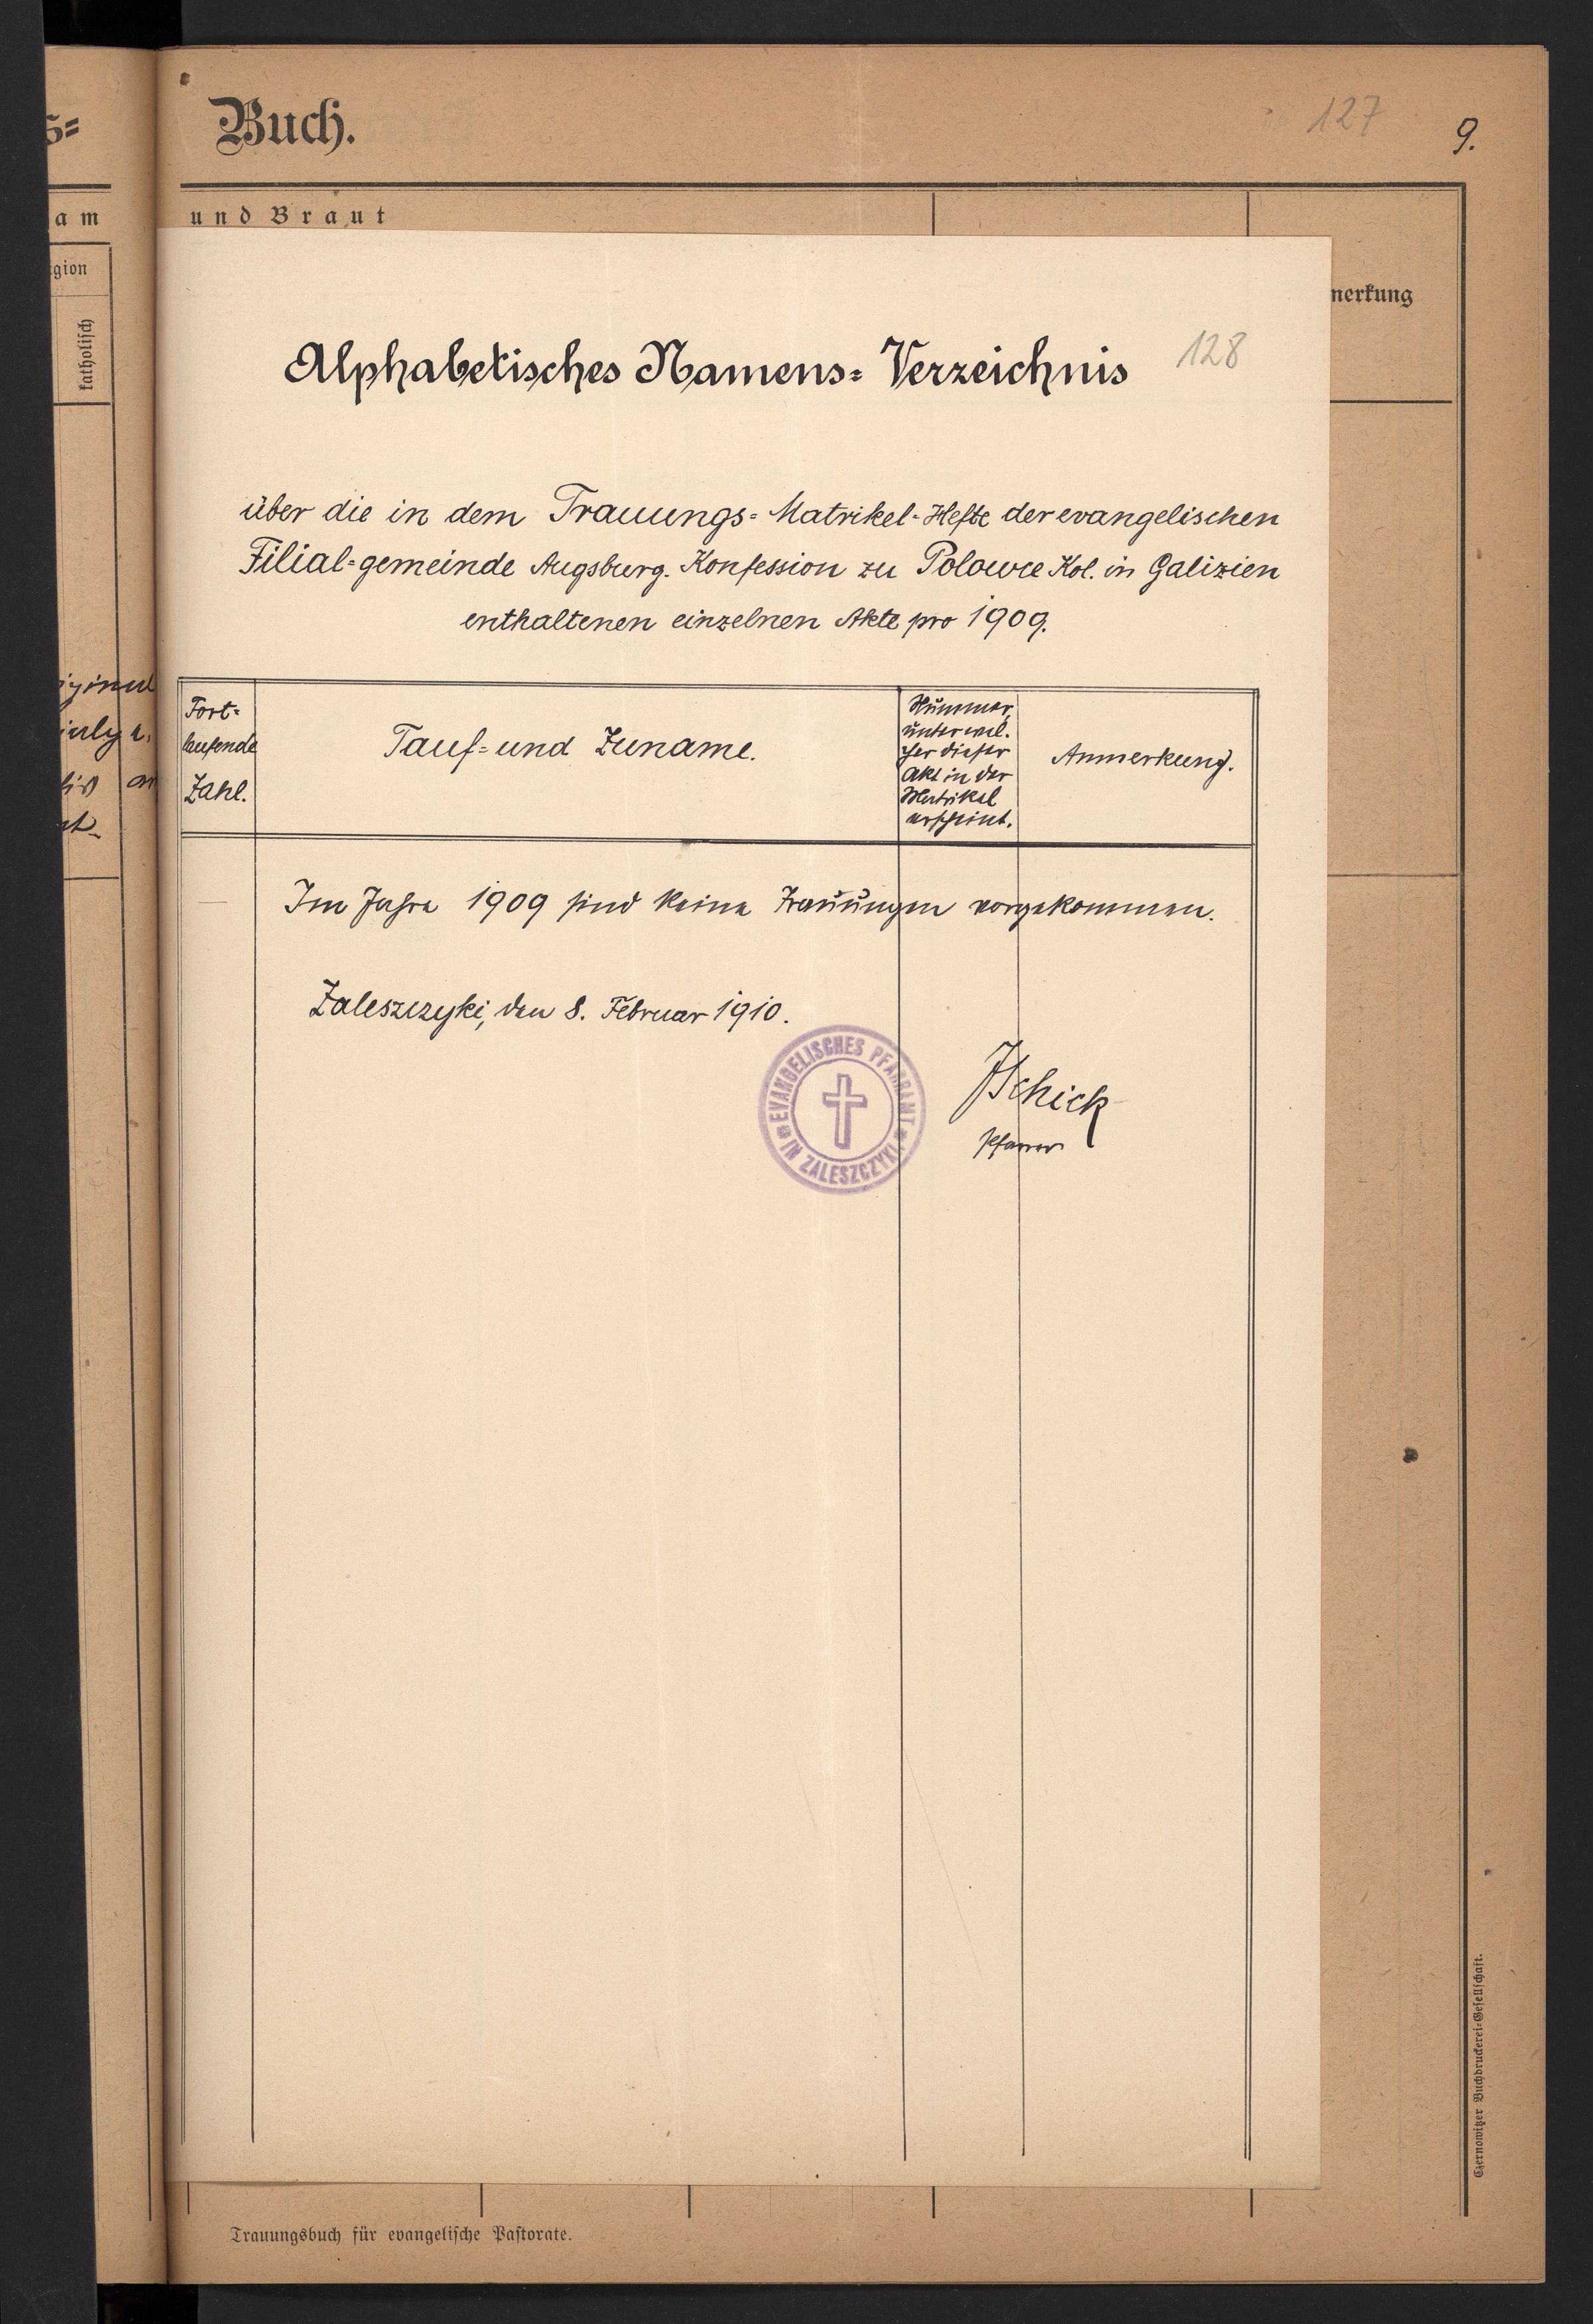 Buch.
127
9.
am
und Braut
gion
katholisch
merkung
Alphabetisches Namens=Verzeichnis
128
über die in dem Trauungs=Matrikel=Hefte der evangelischen
Filial=gemeinde Augsburg. Konfession zu Polowce Kol. in Galizien
enthaltenen einzelnen Akte pro 1909.
Fort=
laufende
Zahl.
Tauf=und Zuname.
Nummer,
unter wel.
cher dieser
Akt in der
Matrikel
erscheint.
Anmerkung.
— Im Jahre 1909 sind keine Trauungen vorgekommen.
Zaleszczyki, den 8. Februar 1910.
EVANGELISCHES PFARRAMT
IN ZALESZCZYKI
JSchick
Pfarrer
Trauungsbuch für evangelische Pastorate.
Czernowitzer Buchdruckerei=Gesellschaft.